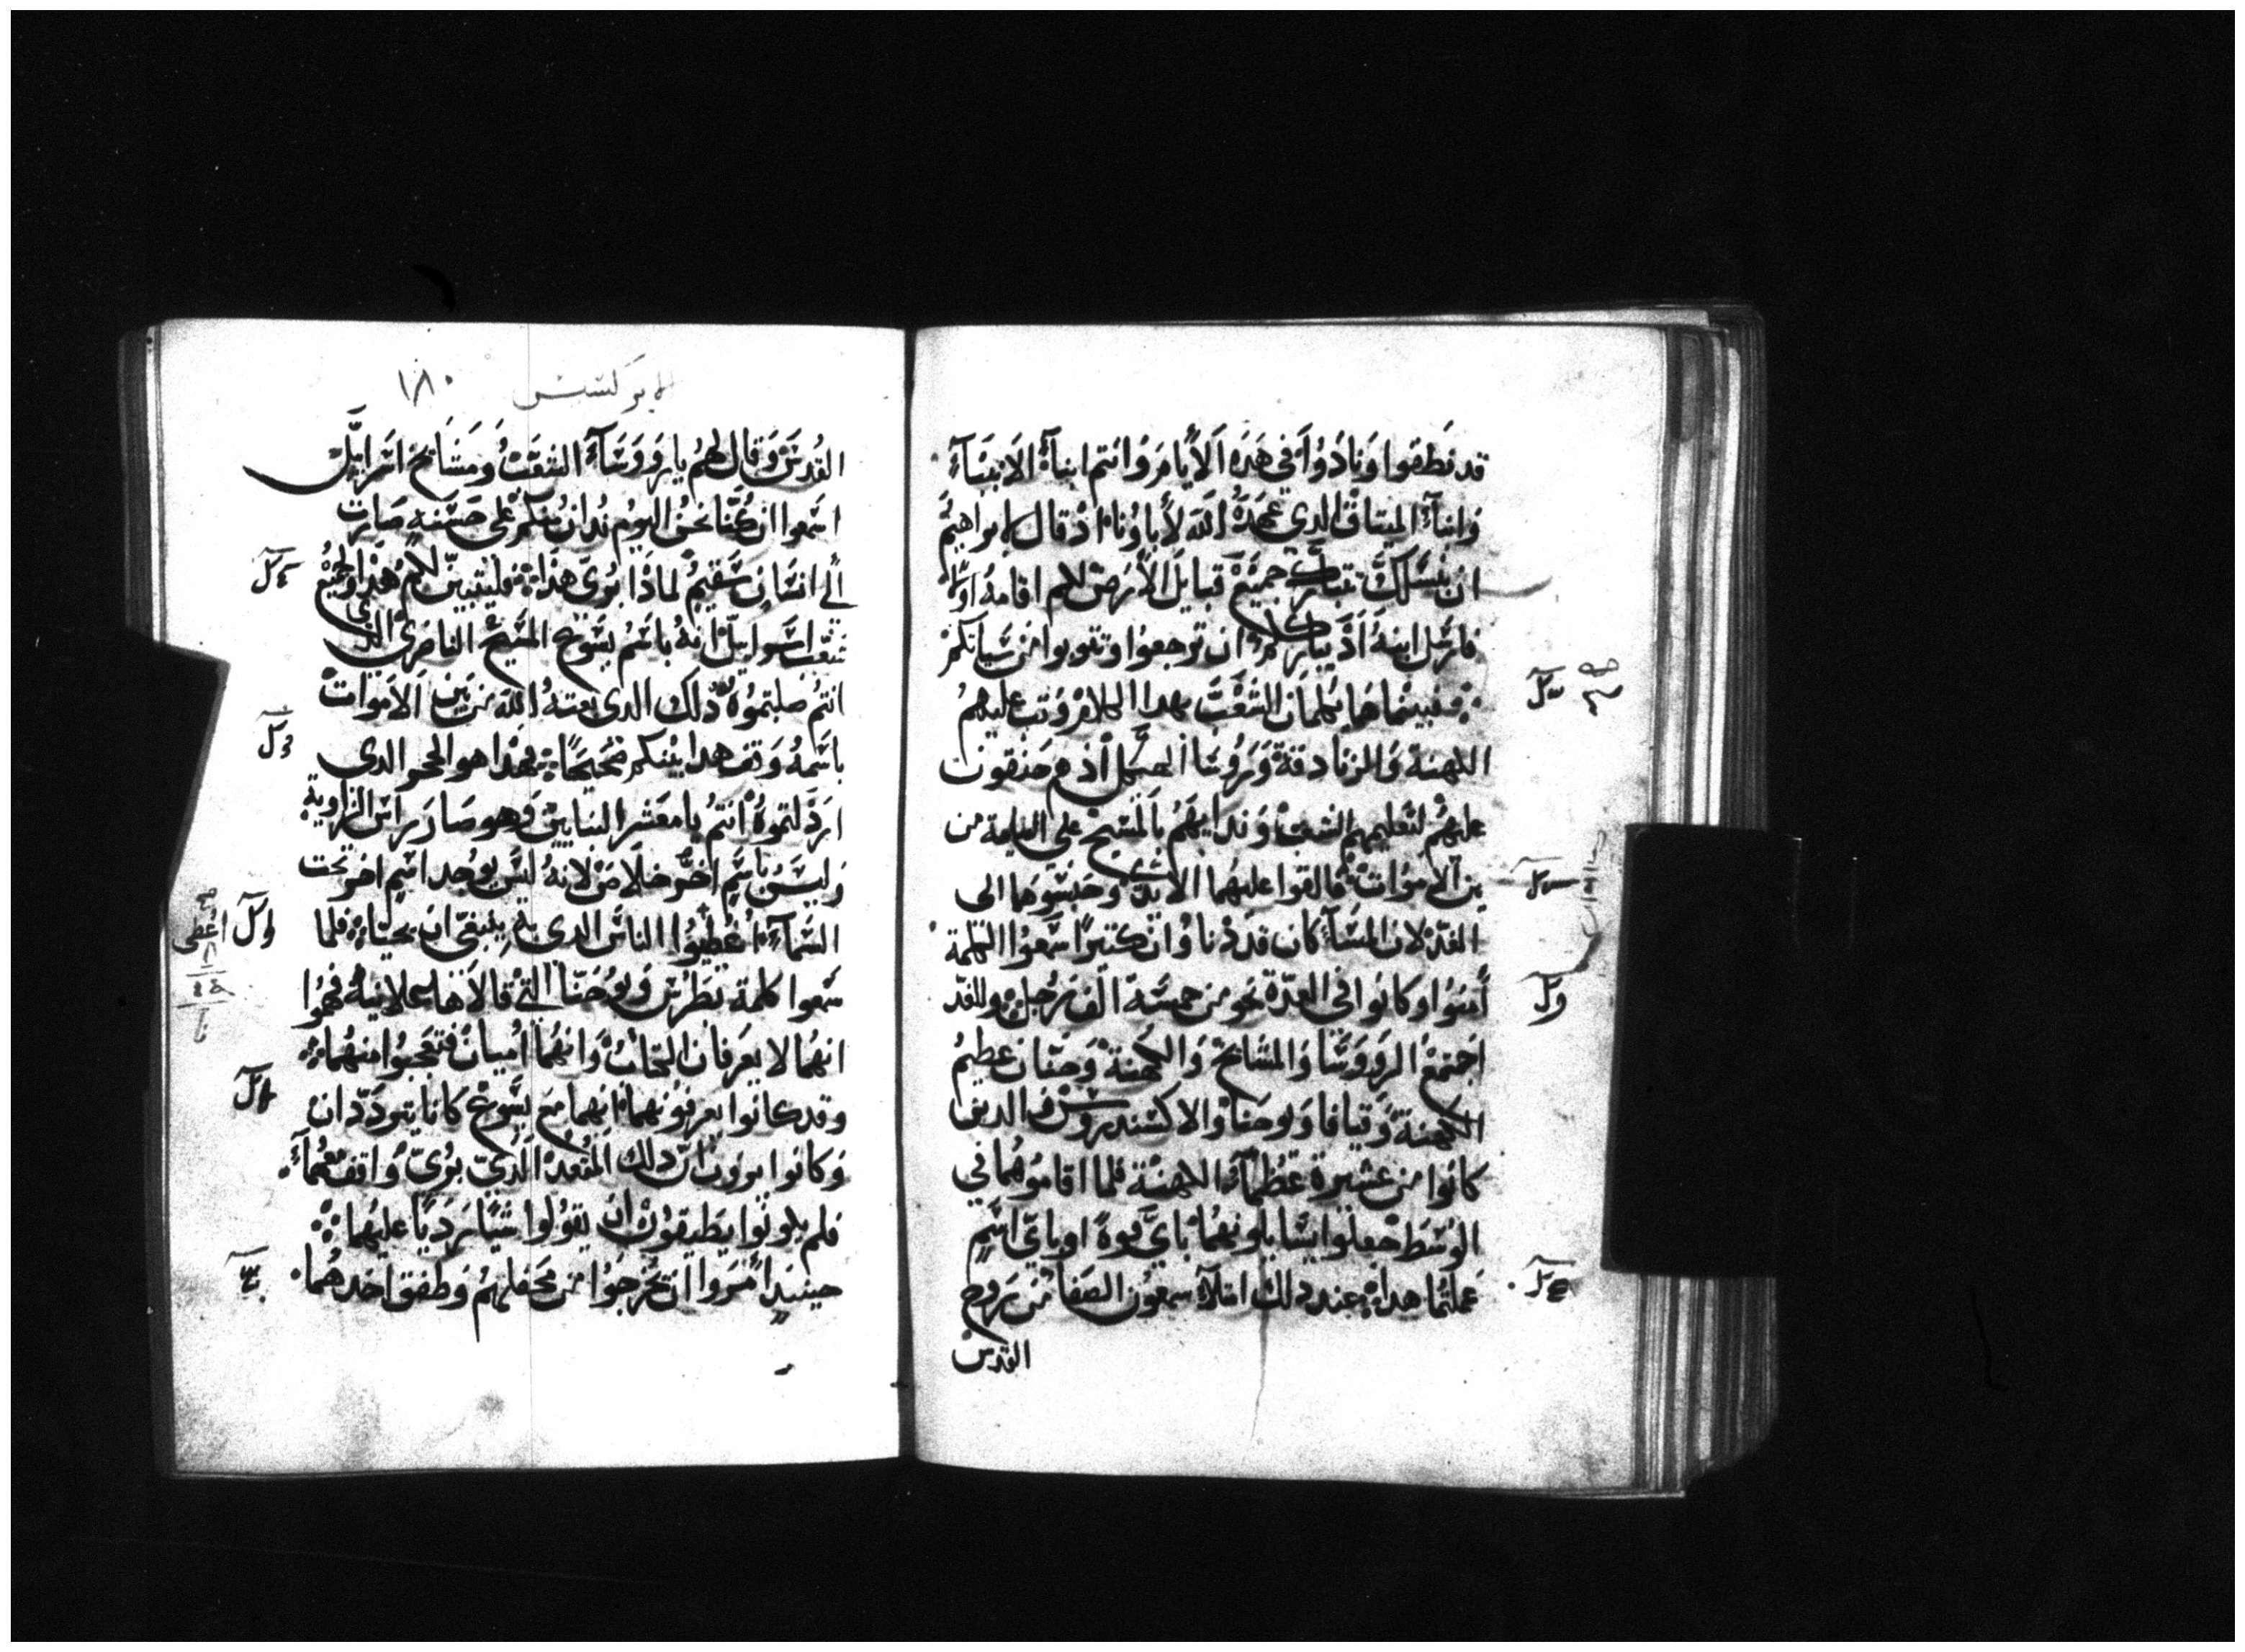 قد نطقوا ونادوا في هذه الايام وانتم ابناء الانبياء
وابناء الميتاق الدي عهده الله لاباونا اذ قال لابراهيم
ان بنسلك تتبارك جميع قبايل الارض لكم اقامه اولا
فارسل ابنه اذ يبارككم ان ترجعوا وتتوبوا من سياتكم
فبينما هما يكلمان الشعب بهدا الكلام وتب عليهم
الكهنة والزنادقة وروسا الهيكل اذ هم حنقون
عليهم لتعليمهم الشعب وندايهم بالمسيح على القيامة من
بين الاموات فالقوا عليهما الايدي وحبسوهما الى
الغد لان المسا كان قد دنا وان كتيرا سمعوا الكلمة
أمنوا وكانوا في العدة نحو من خمسة الف رجل وللغد
اجتمع الرووسا والمشايخ والكهنة وحنان عظيم
الكهنة وقيافا ويوحنا والاكسندروس والدين
كانوا من عشيرة عظماء الكهنة فلما اقاموهما في
الوسط جعلوا يسايلونهما باي قوة او باي اسم
عملتما هدا عند دلك امتلا سمعون الصفا من روح
القدس
الابركسيس ١٨٠
القدس وقال لهم يا رووساء الشعب ومشايخ اسرايل
اسمعوا ان كنا نحن اليوم ندان منكم على حسنة صارت
الى انسان سقيم لماذا بوى هذا فليتبين لكم هذا ولجميع
شعب اسرايل انه باسم يسوع المسيح الناصري الدي
انتم صلبتموه دلك الدي بعته الله من بين الاموات
باسمه وقف هدا بينكم صحيحا فهذا هو الحجر الدي
اردلتموه انتم يا معشر البنايين وهو صار راس الزاوية
وليس باسم اخر خلاص لانه ليس يوجد اسم اخر تحت
السماء اعطيوا الناس الدي به ينبغي ان يحيا فلما
سمعوا كلمة بطرس ويوحنا التي قالاها علانية فهموا
انهما لا يعرفان الكتاب وانهما اميان فتعجبوا منهما
وقد كانوا يعرفونهما انهما مع يسوع كانا يتوددان
وكانوا يرون ان دلك المقعد الدي بوي واقف معهما
فلم يكونوا يطيقون ان يقولوا شيا رديا عليهما
حينيد امروا ان تخرجوا من محفلهم وطفق احدهما
اعطى